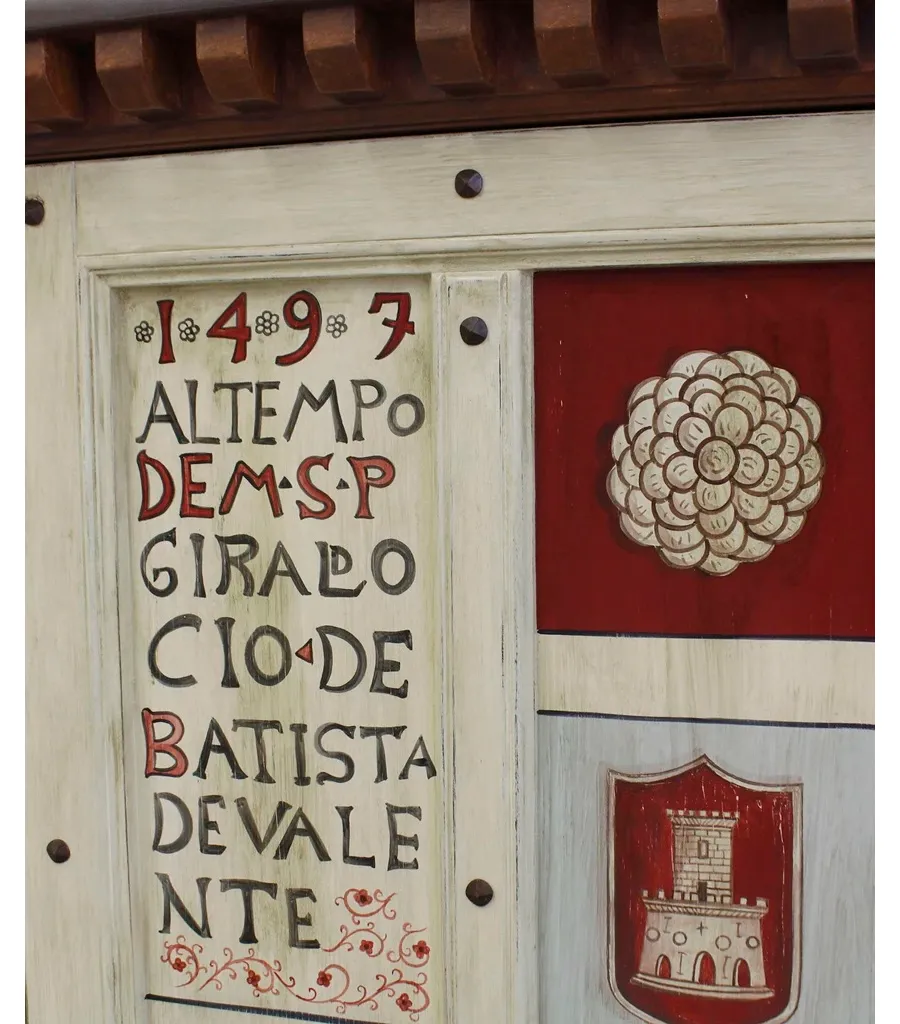 1497
ALTEMPO
DEM·S·P
GIRALDO
CIO◂DE
BATISTA
DEVALE
NTE